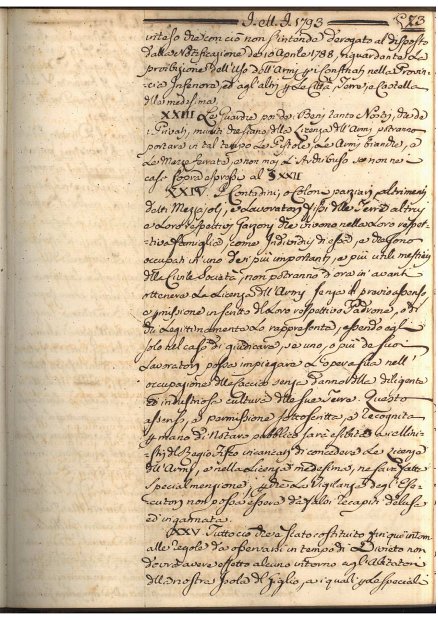 J.M.J. 1793
inteso che con ciò non s'intende derogato al disposto
dalla Notificazione de 10 Aprile 1788, riguardante la
proibizione dell'uso dell'Armi p i Confinati nella Provin-
cia Inferiore, ed agl'altri p le Città Terre, e Castella
della medesima.
XXIII Le Guardie poi de' Beni tanto Nostri, che de
Privati, munite che siano della Licenza dell'Armi potranno
portare in tal tempo le Pistole, le Armi bianche, e
la Mazza ferrata, e non mai l'Archibuso se non nei
casi sopra espressi al § XXII
XXIV I Contadini, o Coloni parziarj altrimenti
detti Mezzajoli, e Lavoratori fissi delle Terre altrui,
e loro respettivi Garzoni che vivono nella loro respet-
tiva Famiglia come Individui di essa, e vengono
occupati in uno dei più importanti, e più utili mestieri
della Civile Società, non potranno d'ora in avanti
ottenere la Licenza dell'Armi senza il previo assenso,
e permissione in scritto del loro respettivo Padrone, o di
chi legittimamente lo rappresenta, essendo egli
solo nel caso di giudicare, se uno, o più de suoi
Lavoratori possa impiegare l'opera sua nell'
occupazione della caccia senza danno della diligente
ed industriosa cultura delle sue Terre. Questo
assenso, e permissione sottoscritta, e recognita
p mano di Notaro pubblico sarà esibita a i Mini-
stri del Regio Fisco incaricati di concedere le Licenze
dell'Armi, e nella Licenza medesima, ne sarà fatta
special menzione, perche la vigilanza degl'Ese-
cutori non possa essere da falsi recapiti delusa
ed ingannata.
XXV Tutto ciò che è stato costituito fin qui intorno
alle regole da osservarsi in tempo di Divieto non
dovrà avere effetto alcuno intorno agl'Abitatori
della nostra Isola del Giglio, a i quali p le speciali